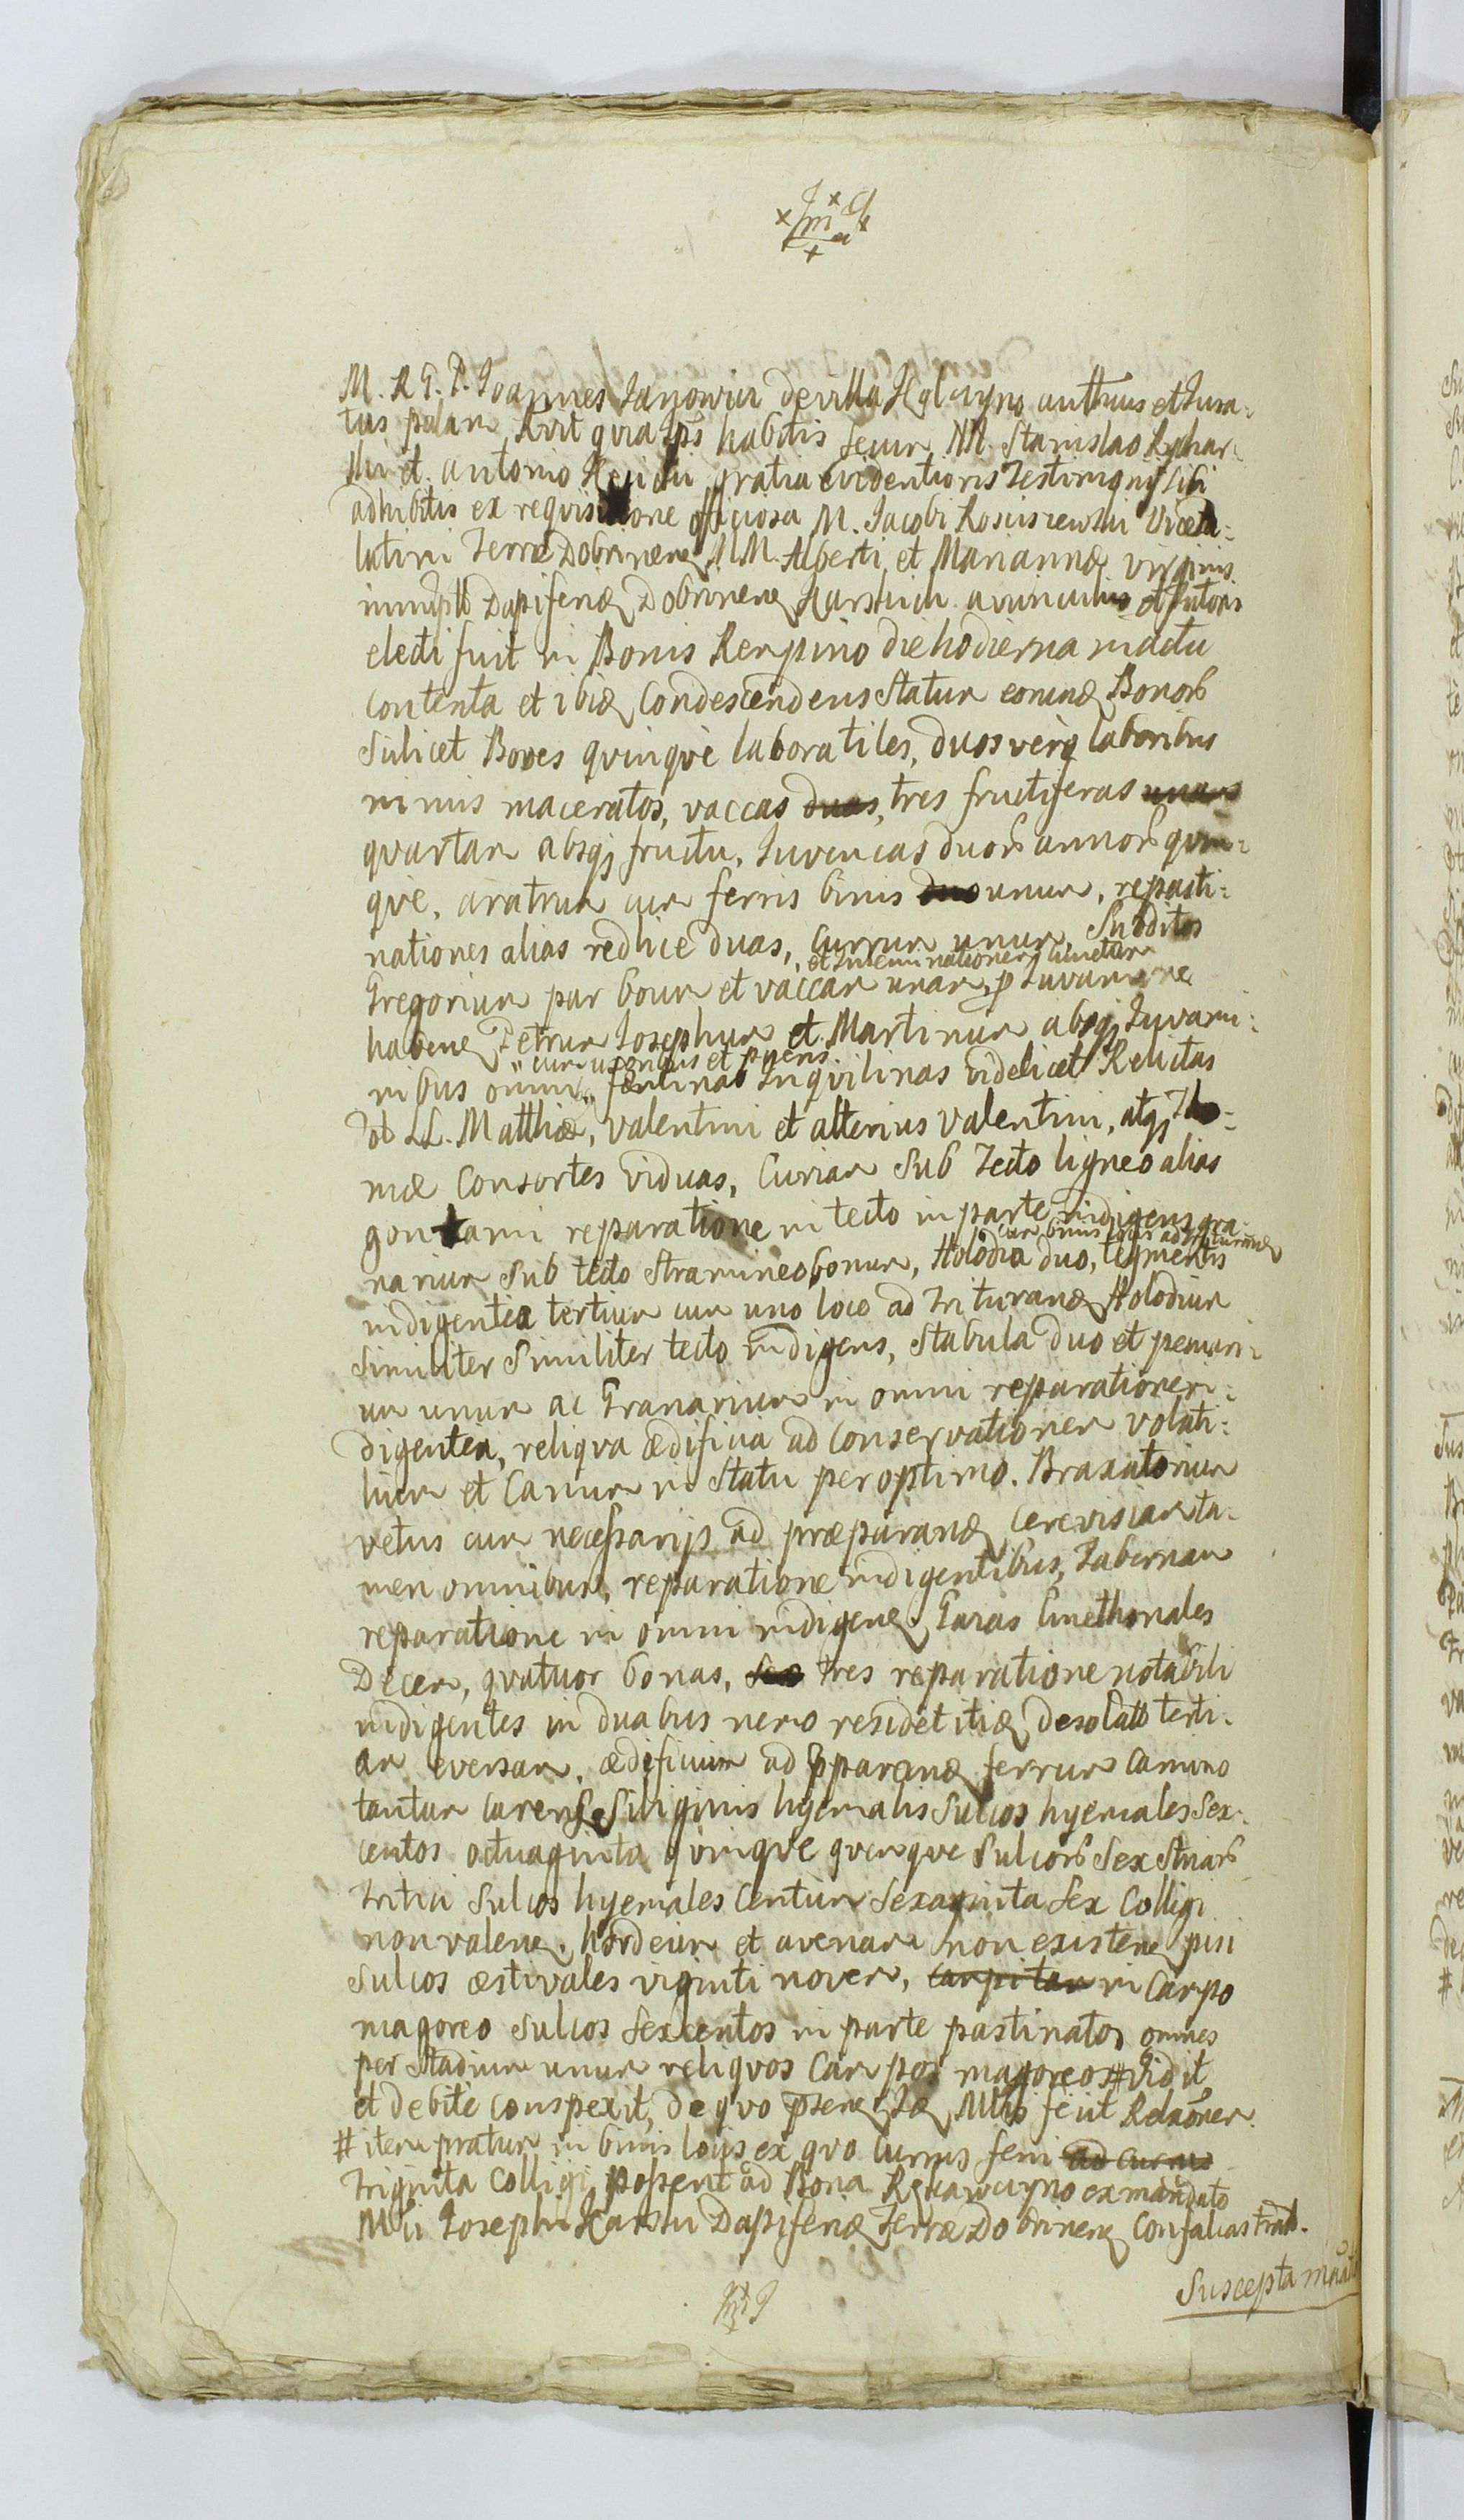 M. R G. P. Joannes Janowicz de villa authcus et Jura-
tus palam Rvit quia Ips habitis secum NN. Stanislao Rychar-
ski et Antonio gratia evidentioris Testimonij sibi
adhibitis ex requisitione officiosa M. Jacobi Rosciszewski Viceca-
latini Terræ Dobrinen MM. Alberti et Mariannæ virginis
Dapiferidæ Dobrinen Karskich avunculus et Tutoris
electi fuit in Bonis Rempino die hodierna in actu
contenta et ibid Condescendens Statum eorund Bonorb
Scilicet Boves quinque laboratiles, duos vero laboribus
nimis maceratos, vaccas duas, tres fructiferas unam
quartam absq fructu, Juvencas duorb annorb quin-
que, aratrum cum ferris binis duo unum, repasti-
nationes alias redlice duas, Currum unum, Subditos
et Inseminationem Cmetum
Gregorium par boum et vaccam unam p Juvamine
haben Petrum Josephum et Martinum absq Juvami-
" cum uxoribus et pueris
nibus omni " fœminas Inquilinas videlicet Relictas
ol LL. Matthiæ, Valentini et alterius Valentini, atq Tho-
mæ Consortes viduas, Curiam sub Tecto ligneo alias
gontami reparatione in tecto in parte indigens, gra-
cum binis locis ad Triturand
narium sub tecto stramineo bonum, Holodia duo, tegmentis
indigentea tertium cum uno loco ad Triturand Holodium
similiter Similiter tecto indigens, Stabula duo et pecuari-
um unum ac Granarium in omni reparationem in-
digentea, reliqva ædificia ad conservationem volati-
lium et Canum in statu peroptimo. Braxatorium
vetus cum necessarijs ad præparand cerevisiam ta-
men omnibus, reparatione indigentibus, Tabernam
reparatione in omni indigene, Garas Cmethonales
Decem, quatuor bonas, sex tres reparatione notabili
indigentes in duabus nemo residet itid desolatb terti-
am eversam, ædificium ad pparand ferrum Camino
tantum carens. Siliginis hyemalis Sulcos hyemales Sex-
centos octuaginta quinque quemque Sulcorb Sex Stuarb
Tritici Sulcos hyemales Centum Sexaginta Sex Colligi
non valene, hordeum et avenam non existene pisi
Sulcos æstivales viginti novem, campitem in Campo
magoreo sulcos Sexcentos in parte pastinatos omnes
per stadium unum reliquos Campos magoreos # Vidit
et debite conspexit, de quo psene Jud Mtio fecit Relaonem.
# item pratum in binis locis ex quo currus feni ad currus
Triginta Colligi possent ad Bona ex mandato
Mci Josephi Karski Dapiferid Terræ Dobrinen Confalias tradb.
Suscepta